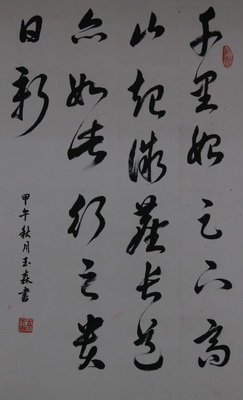 千里始足下高
山起微塵吾道
亦如此行之貴
日新
甲午秋月玉森書